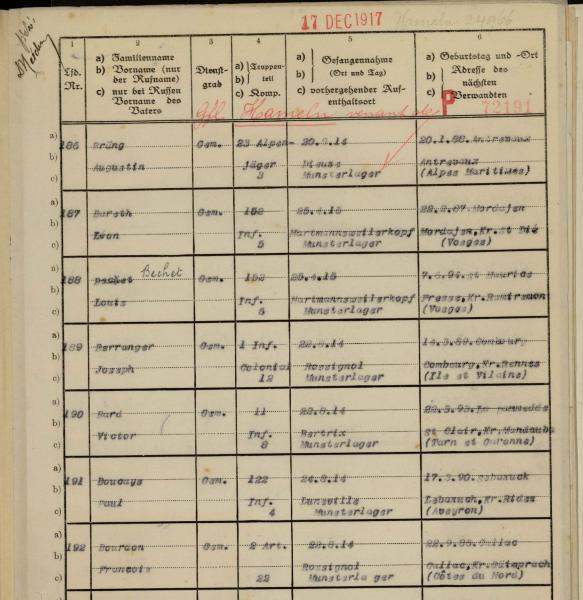 17 DEC 1917 Hameln 249/66
1 2 3 4 5 6
Lfd. Nr.
a) Familienname
b) Vorname (nur der Rufname)
c) nur bei Russen Vorname des Vaters
Dienstgrad
a) Truppenteil
b)
c) Komp.
a) Gefangennahme
b) (Ort und Tag)
c) vorhergehender Aufenthaltsort
a) Geburtstag und -Ort
b) Adresse des
c) nächsten Verwandten
Gfl. Hameln venant de P 72191
186 a) Brüng Gem. 23 Alpen- 20.8.14 20.1.88 Antrevaux
b) Augustin Jäger Dieuze Antrevaux
c) 3 Munsterlager (Alpes Maritimes)
187 a) Bareth Gem. 152 25.4.15 22.2.87 Mordajen
b) Léon Inf. Hartmannsweilerkopf Mordajen, Kr. St Dié
c) 5 Munsterlager (Vosges)
188 a) Bechet Gem. 152 25.4.15 St Maurice
b) Louis Inf. Hartmannsweilerkopf Kr. Remiremont
c) Munsterlager (Vosges)
189 a) Berranger Gem. 1 Inf. 22.8.14 14.3.89 Combourg
b) Joseph Colonial Rossignol Combourg, Kr. Rennes
c) 12 Munsterlager (Ile et Vilaine)
190 a) Bard Gem. 11 22.8.14 22.3.93
b) Victor Inf. Bertrix St Clair, Kr.
c) 8 Munsterlager (Tarn et Garonne)
191 a) Boucays Gem. 122 24.8.14 17.3.90
b) Paul Inf. Luneville
c) 4 Munsterlager (Aveyron)
192 a) Bourdon Gem. 2 Art. 22.8.14 Callac
b) Francois Rossignol Callac, Kr.
c) 22 Munsterla ger (Côtes du Nord)